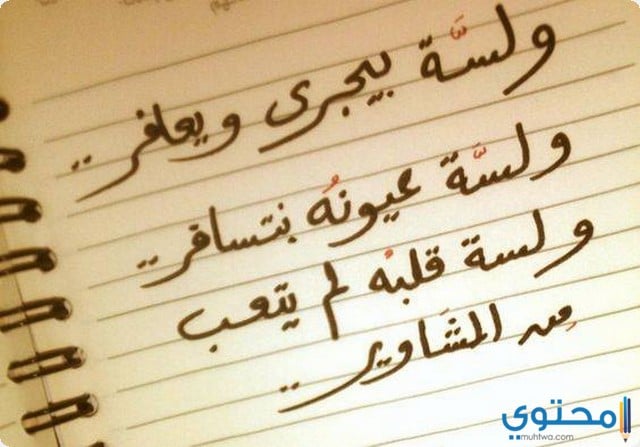 ولسَّة بيجرى ويعافر ..
ولسَّة عيونهُ بتسافر ..
ولسة قلبهُ لم يتعب
مِن المشَاوير ..
محتوي
muhtwa.com